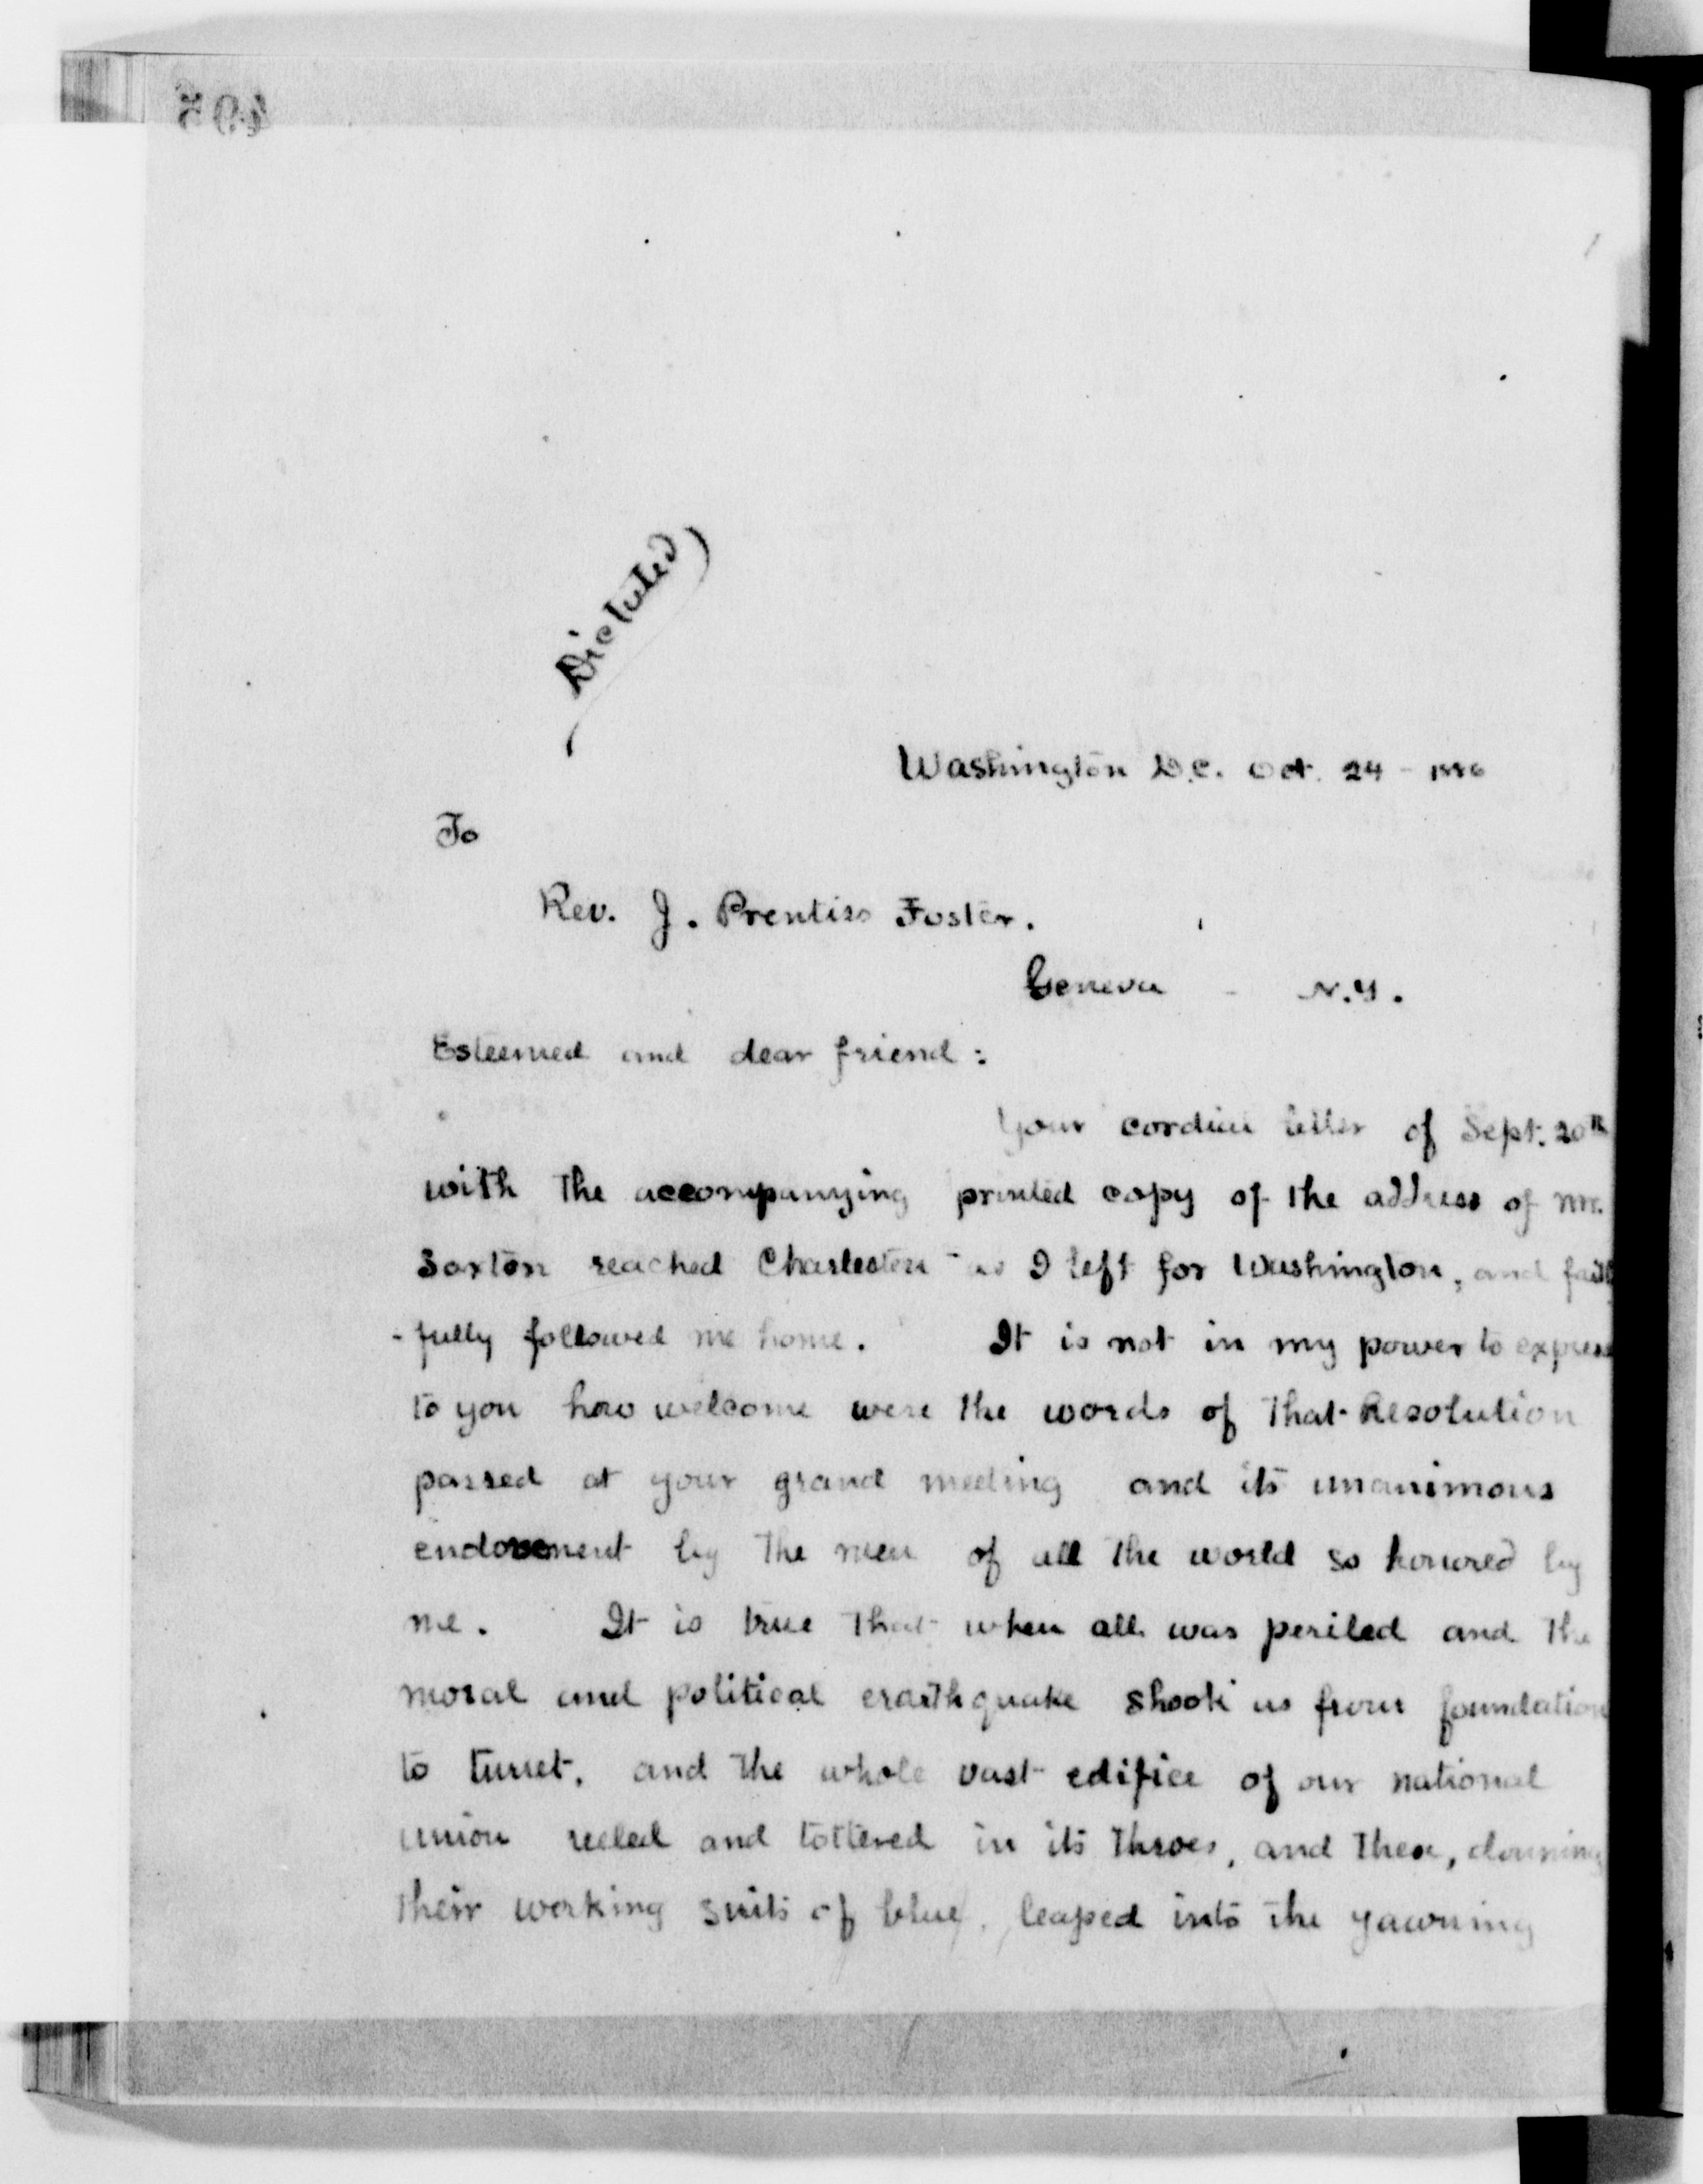 495
(Dictated)
Washington D.C. Oct. 24 - 1886
To
Rev. J. Prentiss Foster.
Geneva - N.Y.
Esteemed and dear friend:
Your cordial letter of Sept. 20th
with the accompanying printed copy of the address of Mr.
Saxton reached Charleston as I left for Washington, and faith
-fully followed me home. It is not in my power to express
to you how welcome were the words of that Resolution
passed at your grand meeting and its unanimous
endorsement by the men of all the world so honored by
me. It is true that when all was periled and the
moral and political erarthquake shook us from foundation
to turret, and the whole vast edifice of our national
union reeled and tottered in its throes, and these, donning
their working suits of blue, leaped into the yawning